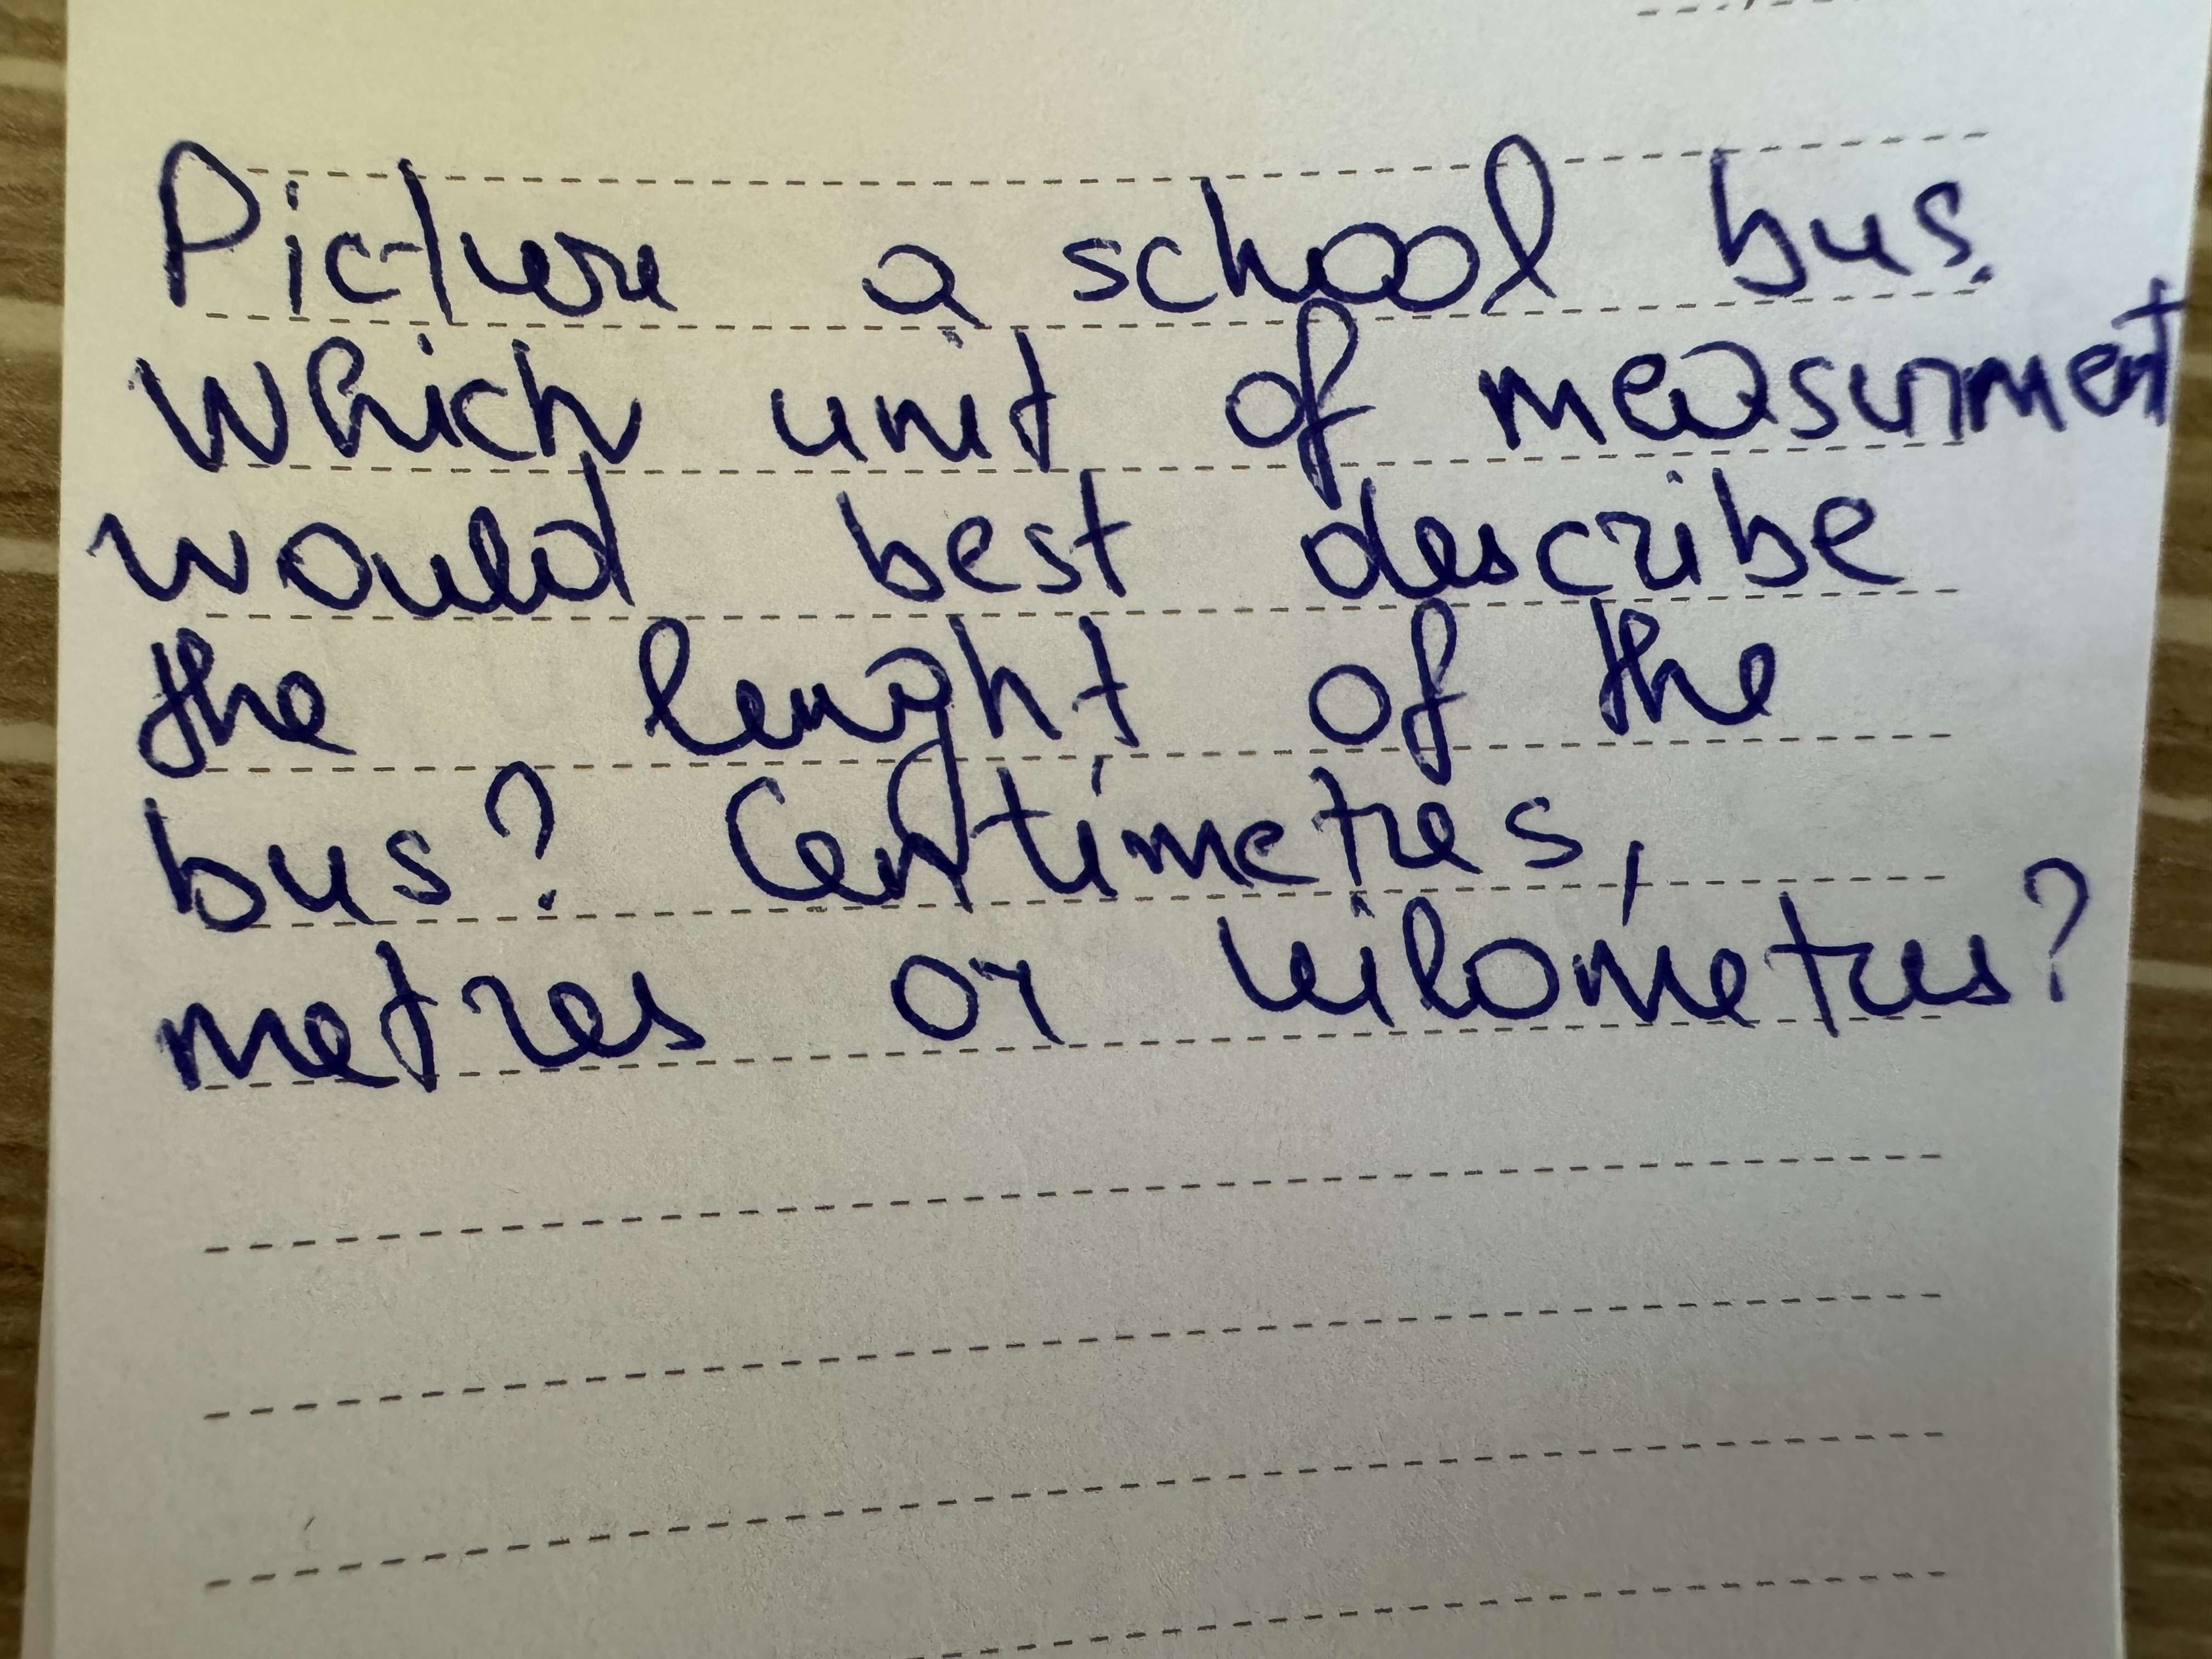 Picture a school bus.
Which unit of measurment
would best describe
the lenght of the
bus? Centimetres,
metres or kilometres?